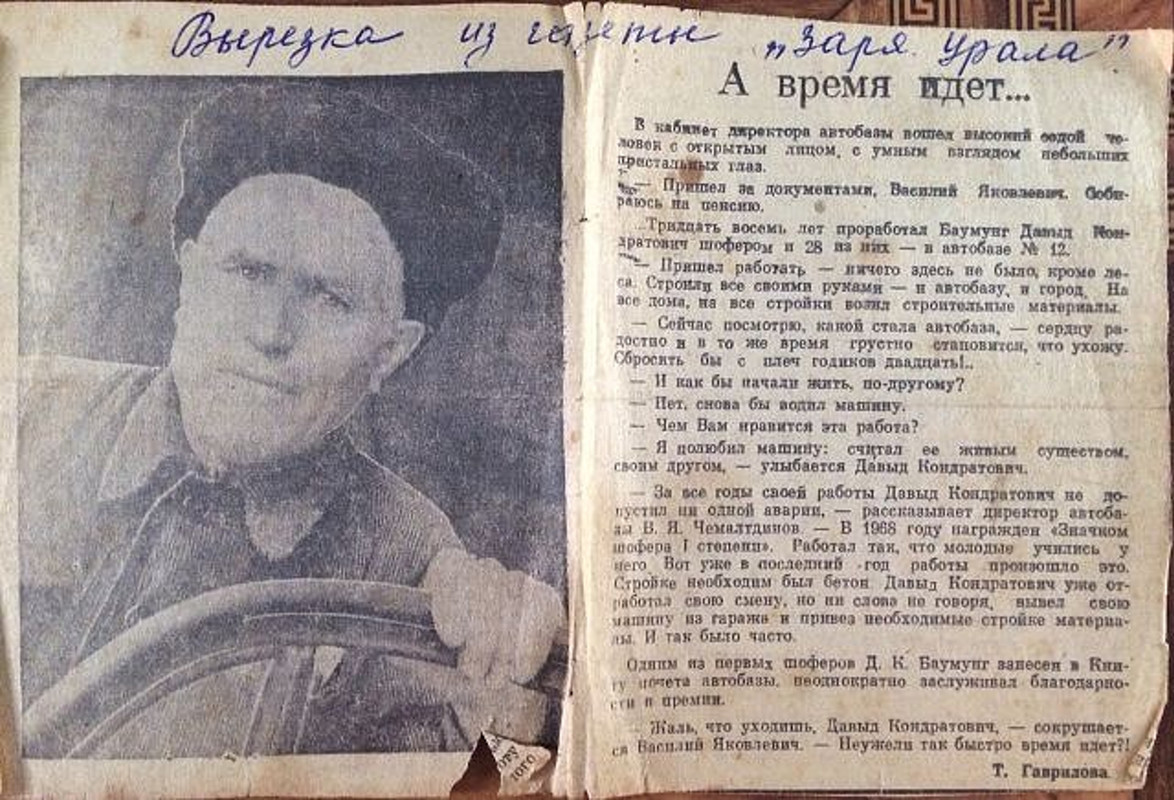 Вырезка из газеты „Заря Урала"
А время идет...
В кабинет директора автобазы вошел высокий седой че-
ловек с открытым лицом, с умным взглядом небольших
пристальных глаз.
— Пришел за документами, Василий Яковлевич. Соби-
раюсь на пенсию.
Тридцать восемь лет проработал Баумунг Давыд Кон-
дратович шофером и 28 из них — в автобазе № 12.
— Пришел работать — ничего здесь не было, кроме ле-
са. Строили все своими руками — и автобазу, и город. На
все дома, на все стройки возил строительные материалы.
— Сейчас посмотрю, какой стала автобаза, — сердцу ра-
достно и в то же время грустно становится, что ухожу.
Сбросить бы с плеч годиков двадцать!..
— И как бы начали жить, по-другому?
— Нет, снова бы водил машину.
— Чем Вам нравится эта работа?
— Я полюбил машину: считал ее живым существом,
своим другом, — улыбается Давыд Кондратович.
— За все годы своей работы Давыд Кондратович не до-
пустил ни одной аварии, — рассказывает директор автоба-
зы В. Я. Чемалтдинов. — В 1968 году награжден «Значком
шофера I степени». Работал так, что молодые учились у
него. Вот уже в последний год работы произошло это.
Стройке необходим был бетон. Давыд Кондратович уже от-
работал свою смену, но ни слова не говоря, вывел свою
машину из гаража и привез необходимые стройке материа-
лы. И так было часто.
Одним из первых шоферов Д. К. Баумунг занесен в Кни-
гу почета автобазы, неоднократно заслуживал благодарно-
сти и премии.
— Жаль, что уходишь, Давыд Кондратович, — сокрушает-
ся Василий Яковлевич. — Неужели так быстро время идет?!
Т. Гаврилова.
ого